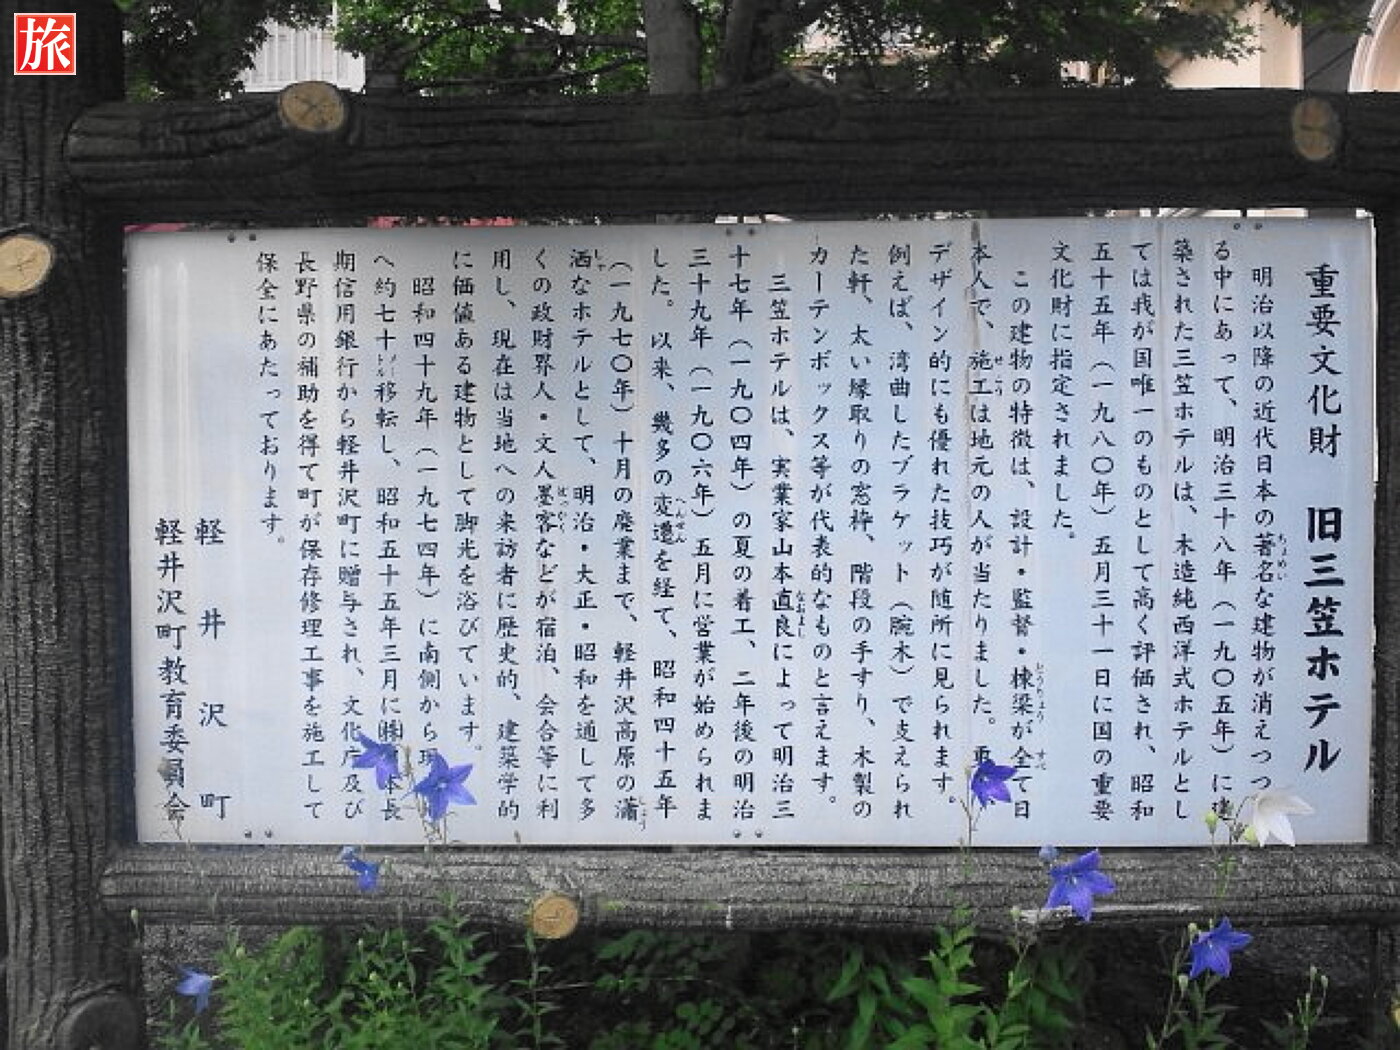 旅
重要文化財 旧三笠ホテル
明治以降の近代日本の著名な建物が消えつつ
る中にあって、明治三十八年（一九〇五年）に建
築された三笠ホテルは、木造純西洋式ホテルとし
ては我が国唯一のものとして高く評価され、昭和
五十五年（一九八〇年）五月三十一日に国の重要
文化財に指定されました。
この建物の特徴は、設計・監督・棟梁が全て日
本人で、施工は地元の人が当たりました。
デザイン的にも優れた技巧が随所に見られます。
例えば、湾曲したブラケット（腕木）で支えられ
た軒、太い縁取りの窓枠、階段の手すり、木製の
カーテンボックス等が代表的なものと言えます。
三笠ホテルは、実業家山本直良によって明治三
十七年（一九〇四年）の夏の着工、二年後の明治
三十九年（一九〇六年）五月に営業が始められま
した。以来、幾多の変遷を経て、昭和四十五年
（一九七〇年）十月の廃業まで、軽井沢高原の瀟
洒なホテルとして、明治・大正・昭和を通して多
くの政財界人・文人墨客などが宿泊、会合等に利
用し、現在は当地への来訪者に歴史的、建築学的
に価値ある建物として脚光を浴びています。
昭和四十九年（一九七四年）に南側から現
へ約七十メートル移転し、昭和五十五年三月に㈱本長
期信用銀行から軽井沢町に贈与され、文化庁及び
長野県の補助を得て町が保存修理工事を施工して
保全にあたっております。
軽井沢町
軽井沢町教育委員会